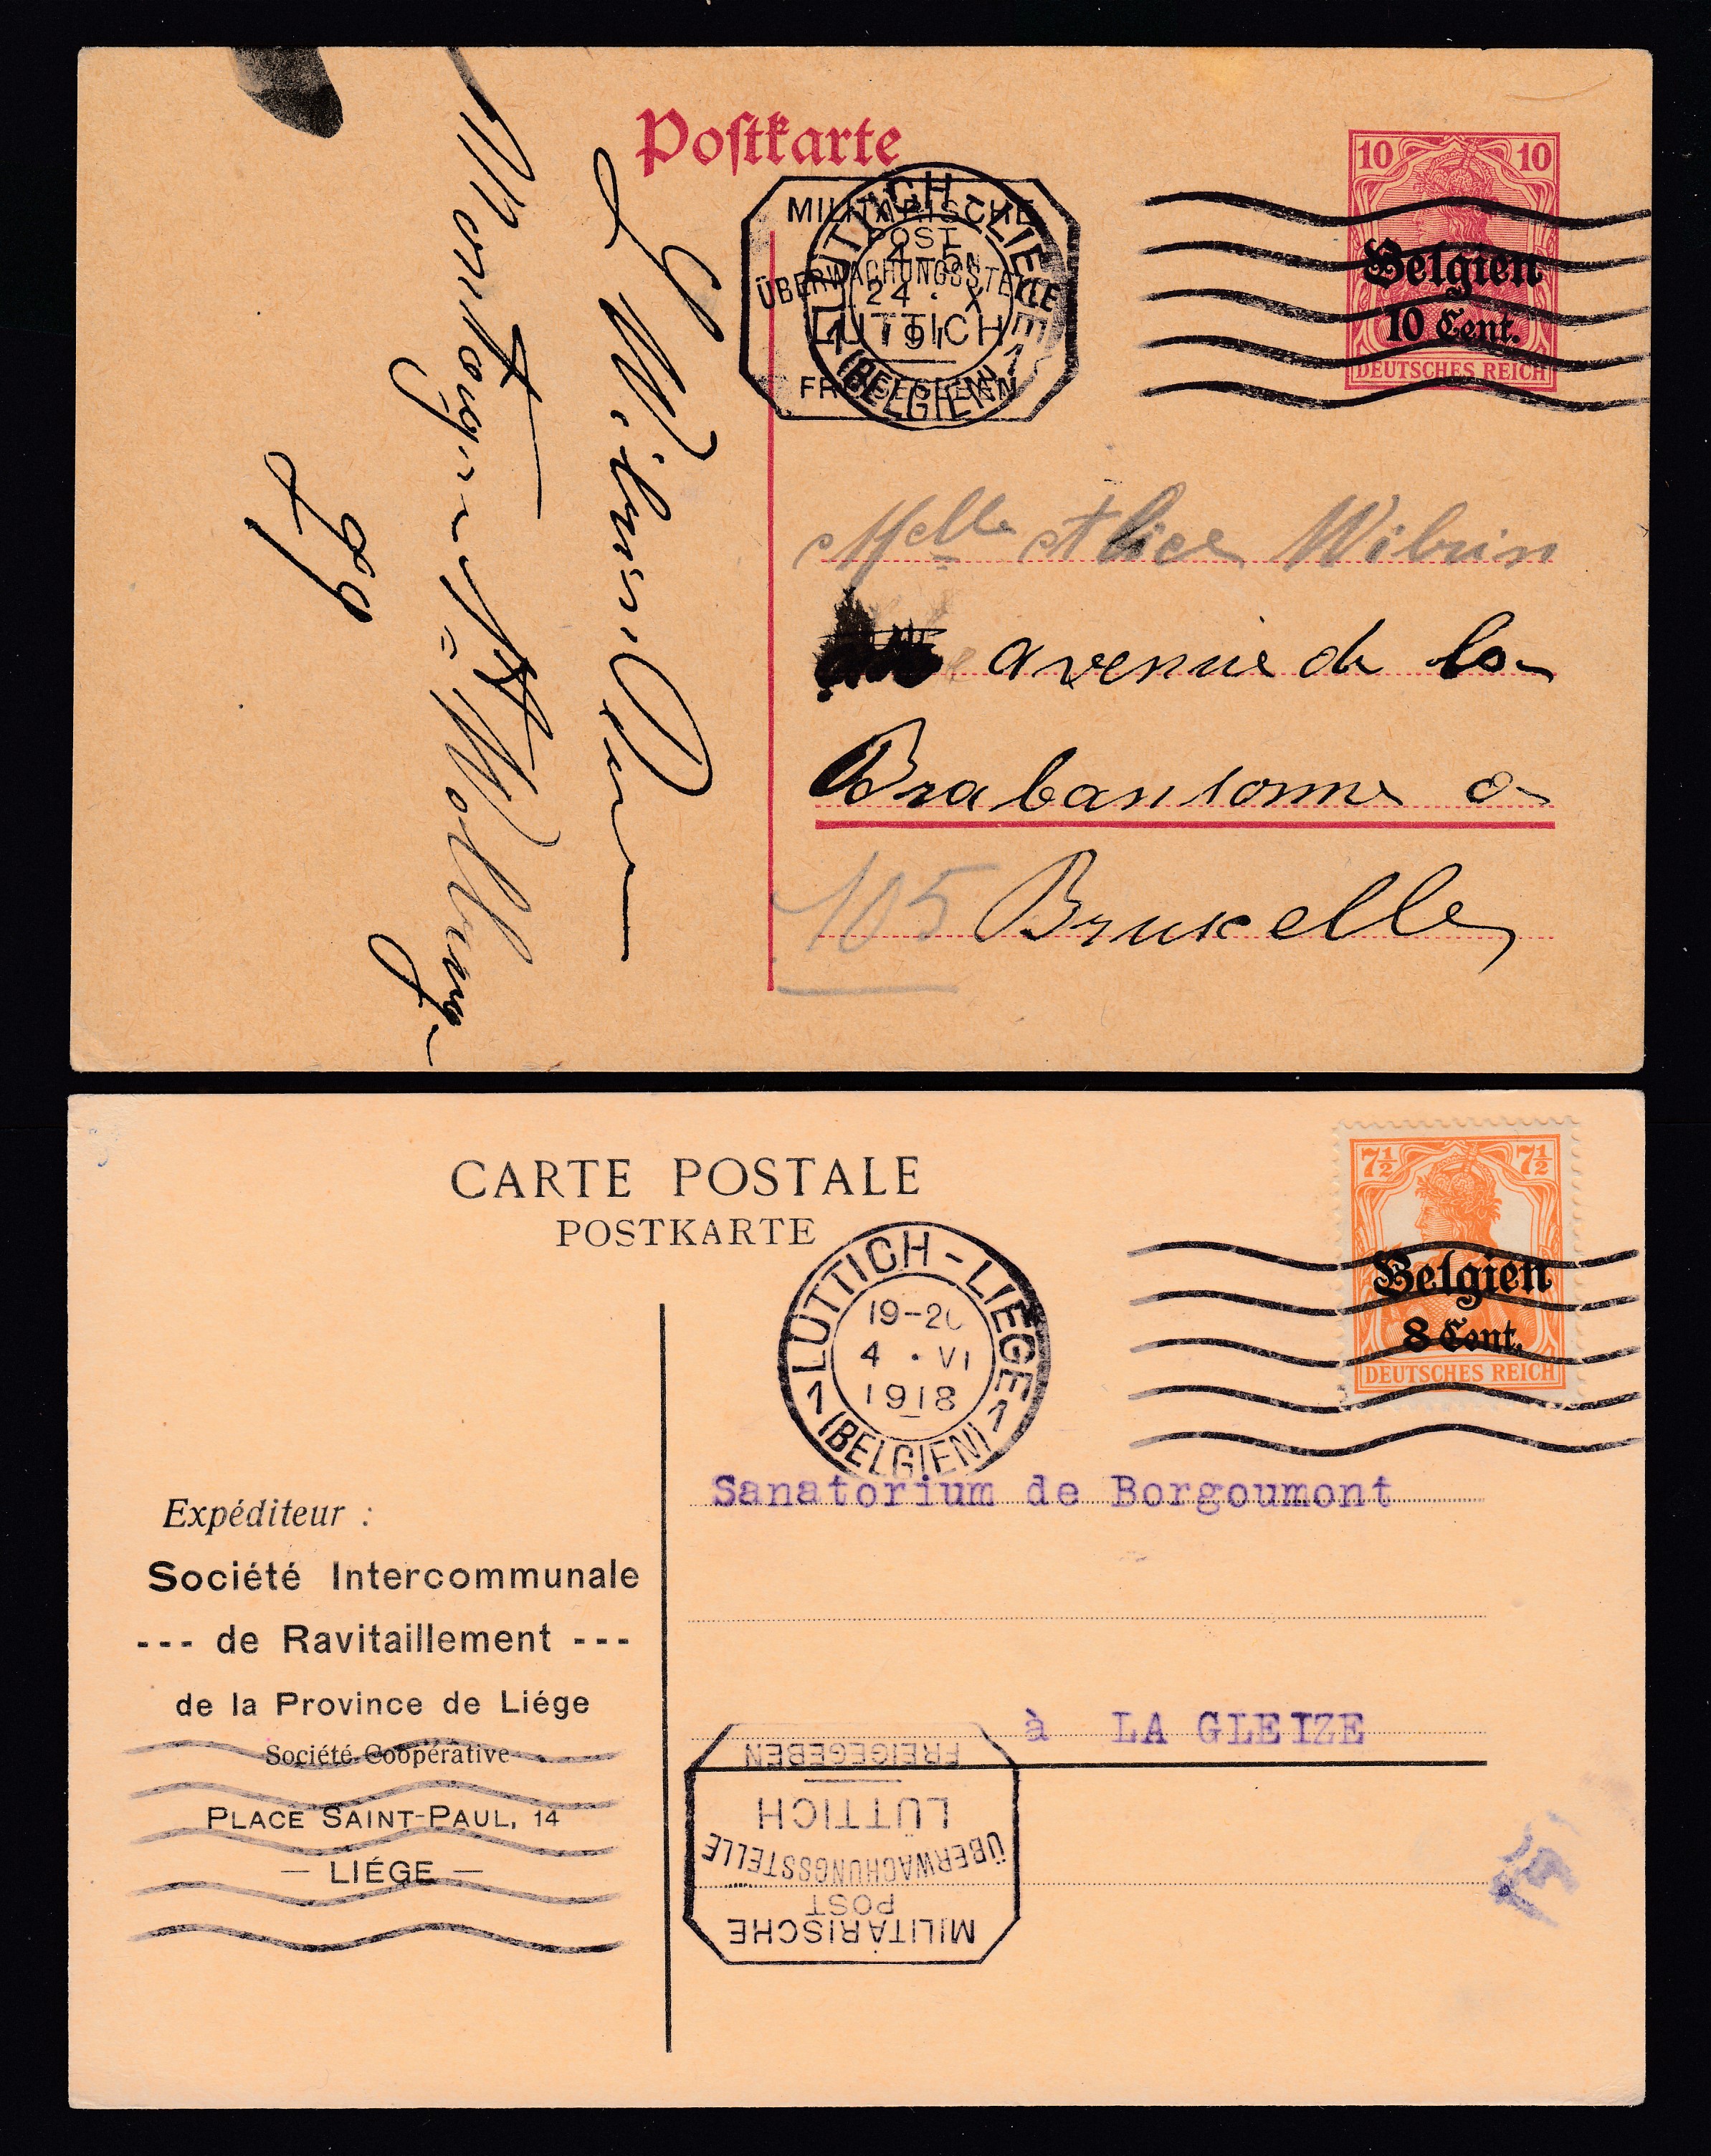 Postkarte
10 10
Belgien
10 Cent.
DEUTSCHES REICH
MILITÄRISCHE
POST
ÜBERWACHUNGSSTELLE
LÜTTICH
FREIGEGEBEN
LÜTTICH-LIÉGE
24 . X
1 (BELGIEN) 1
Melle Alice Wibrin
avenue de la
Brabansonne a
105 Bruxelles
CARTE POSTALE
POSTKARTE
7½ 7½
Belgien
8 Cent.
DEUTSCHES REICH
LÜTTICH-LIÉGE
19-20
4 . VI
1918
1 (BELGIEN) 1
Sanatorium de Borgoumont
à LA GLEIZE
Expéditeur :
Société Intercommunale
--- de Ravitaillement ---
de la Province de Liége
Société Coopérative
PLACE SAINT-PAUL, 14
— LIÉGE —
MILITÄRISCHE
POST
ÜBERWACHUNGSSTELLE
LÜTTICH
FREIGEGEBEN